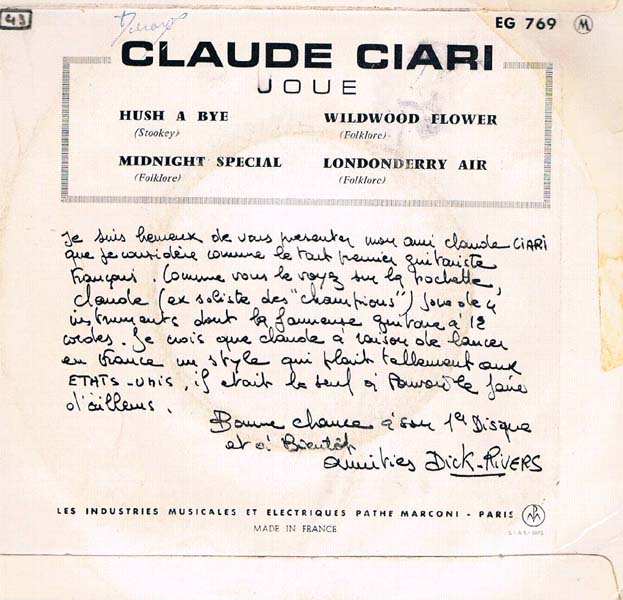 43
EG 769 M
CLAUDE CIARI
JOUE
HUSH A BYE
(Stookey)
WILDWOOD FLOWER
(Folklore)
MIDNIGHT SPECIAL
(Folklore)
LONDONDERRY AIR
(Folklore)
Je suis heureux de vous presenter mon ami claude CIARI
que je considère comme le tout premier guitariste
Français. Comme vous le voyez sur la pochette,
claude (ex soliste des "champions") joue de 4
instruments dont la fameuse guitare à 12
cordes. Je crois que claude à raison de lancer
en France un style qui plait tellement aux
ETATS-UNIS, il etait le seul à Pouvoir le faire
d'ailleurs.
Bonne chance à son 1er Disque
et à Bientôt
amitiés Dick-RIVERS
LES INDUSTRIES MUSICALES ET ELECTRIQUES PATHE MARCONI - PARIS
MADE IN FRANCE